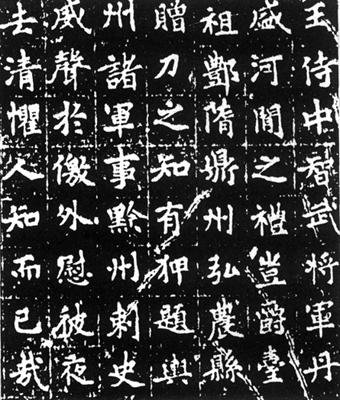 王侍中智武將軍丹
盛河間之禮豈爵臺
祖酆隋鼎州弘農縣
贈刀之知有狎題輿
州諸軍事黔州刺史
威聲於徼外慰彼夜
去清懼人知而已哉